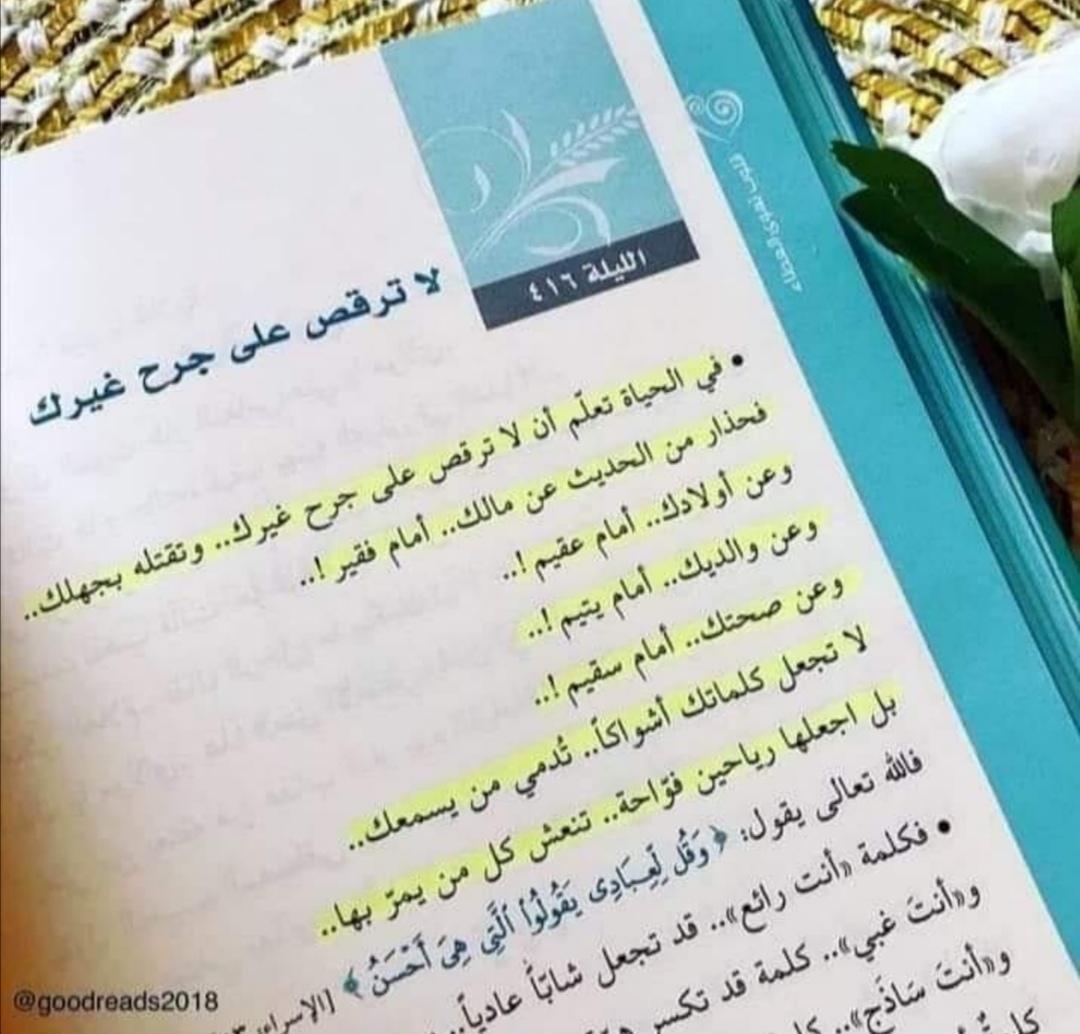 الليلة ٤١٦
لا ترقص على جرح غيرك
• في الحياة تعلّم أن لا ترقص على جرح غيرك.. وتقتله بجهلك..
فحذار من الحديث عن مالك.. أمام فقير !..
وعن أولادك.. أمام عقيم !..
وعن والديك.. أمام يتيم !..
وعن صحتك.. أمام سقيم !..
لا تجعل كلماتك أشواكاً.. تُدمي من يسمعك..
بل اجعلها رياحين فوّاحة.. تنعش كل من يمرّ بها..
فالله تعالى يقول: ﴿ وَقُل لِّعِبَادِى يَقُولُوا۟ ٱلَّتِى هِىَ أَحْسَنُ ﴾ [الإسراء:
• فكلمة «أنت رائع».. قد تجعل شابّاً عادياً..
و«أنتَ غبي».. كلمة قد تكسر
و«أنتَ سَاذَج»..
@goodreads2018